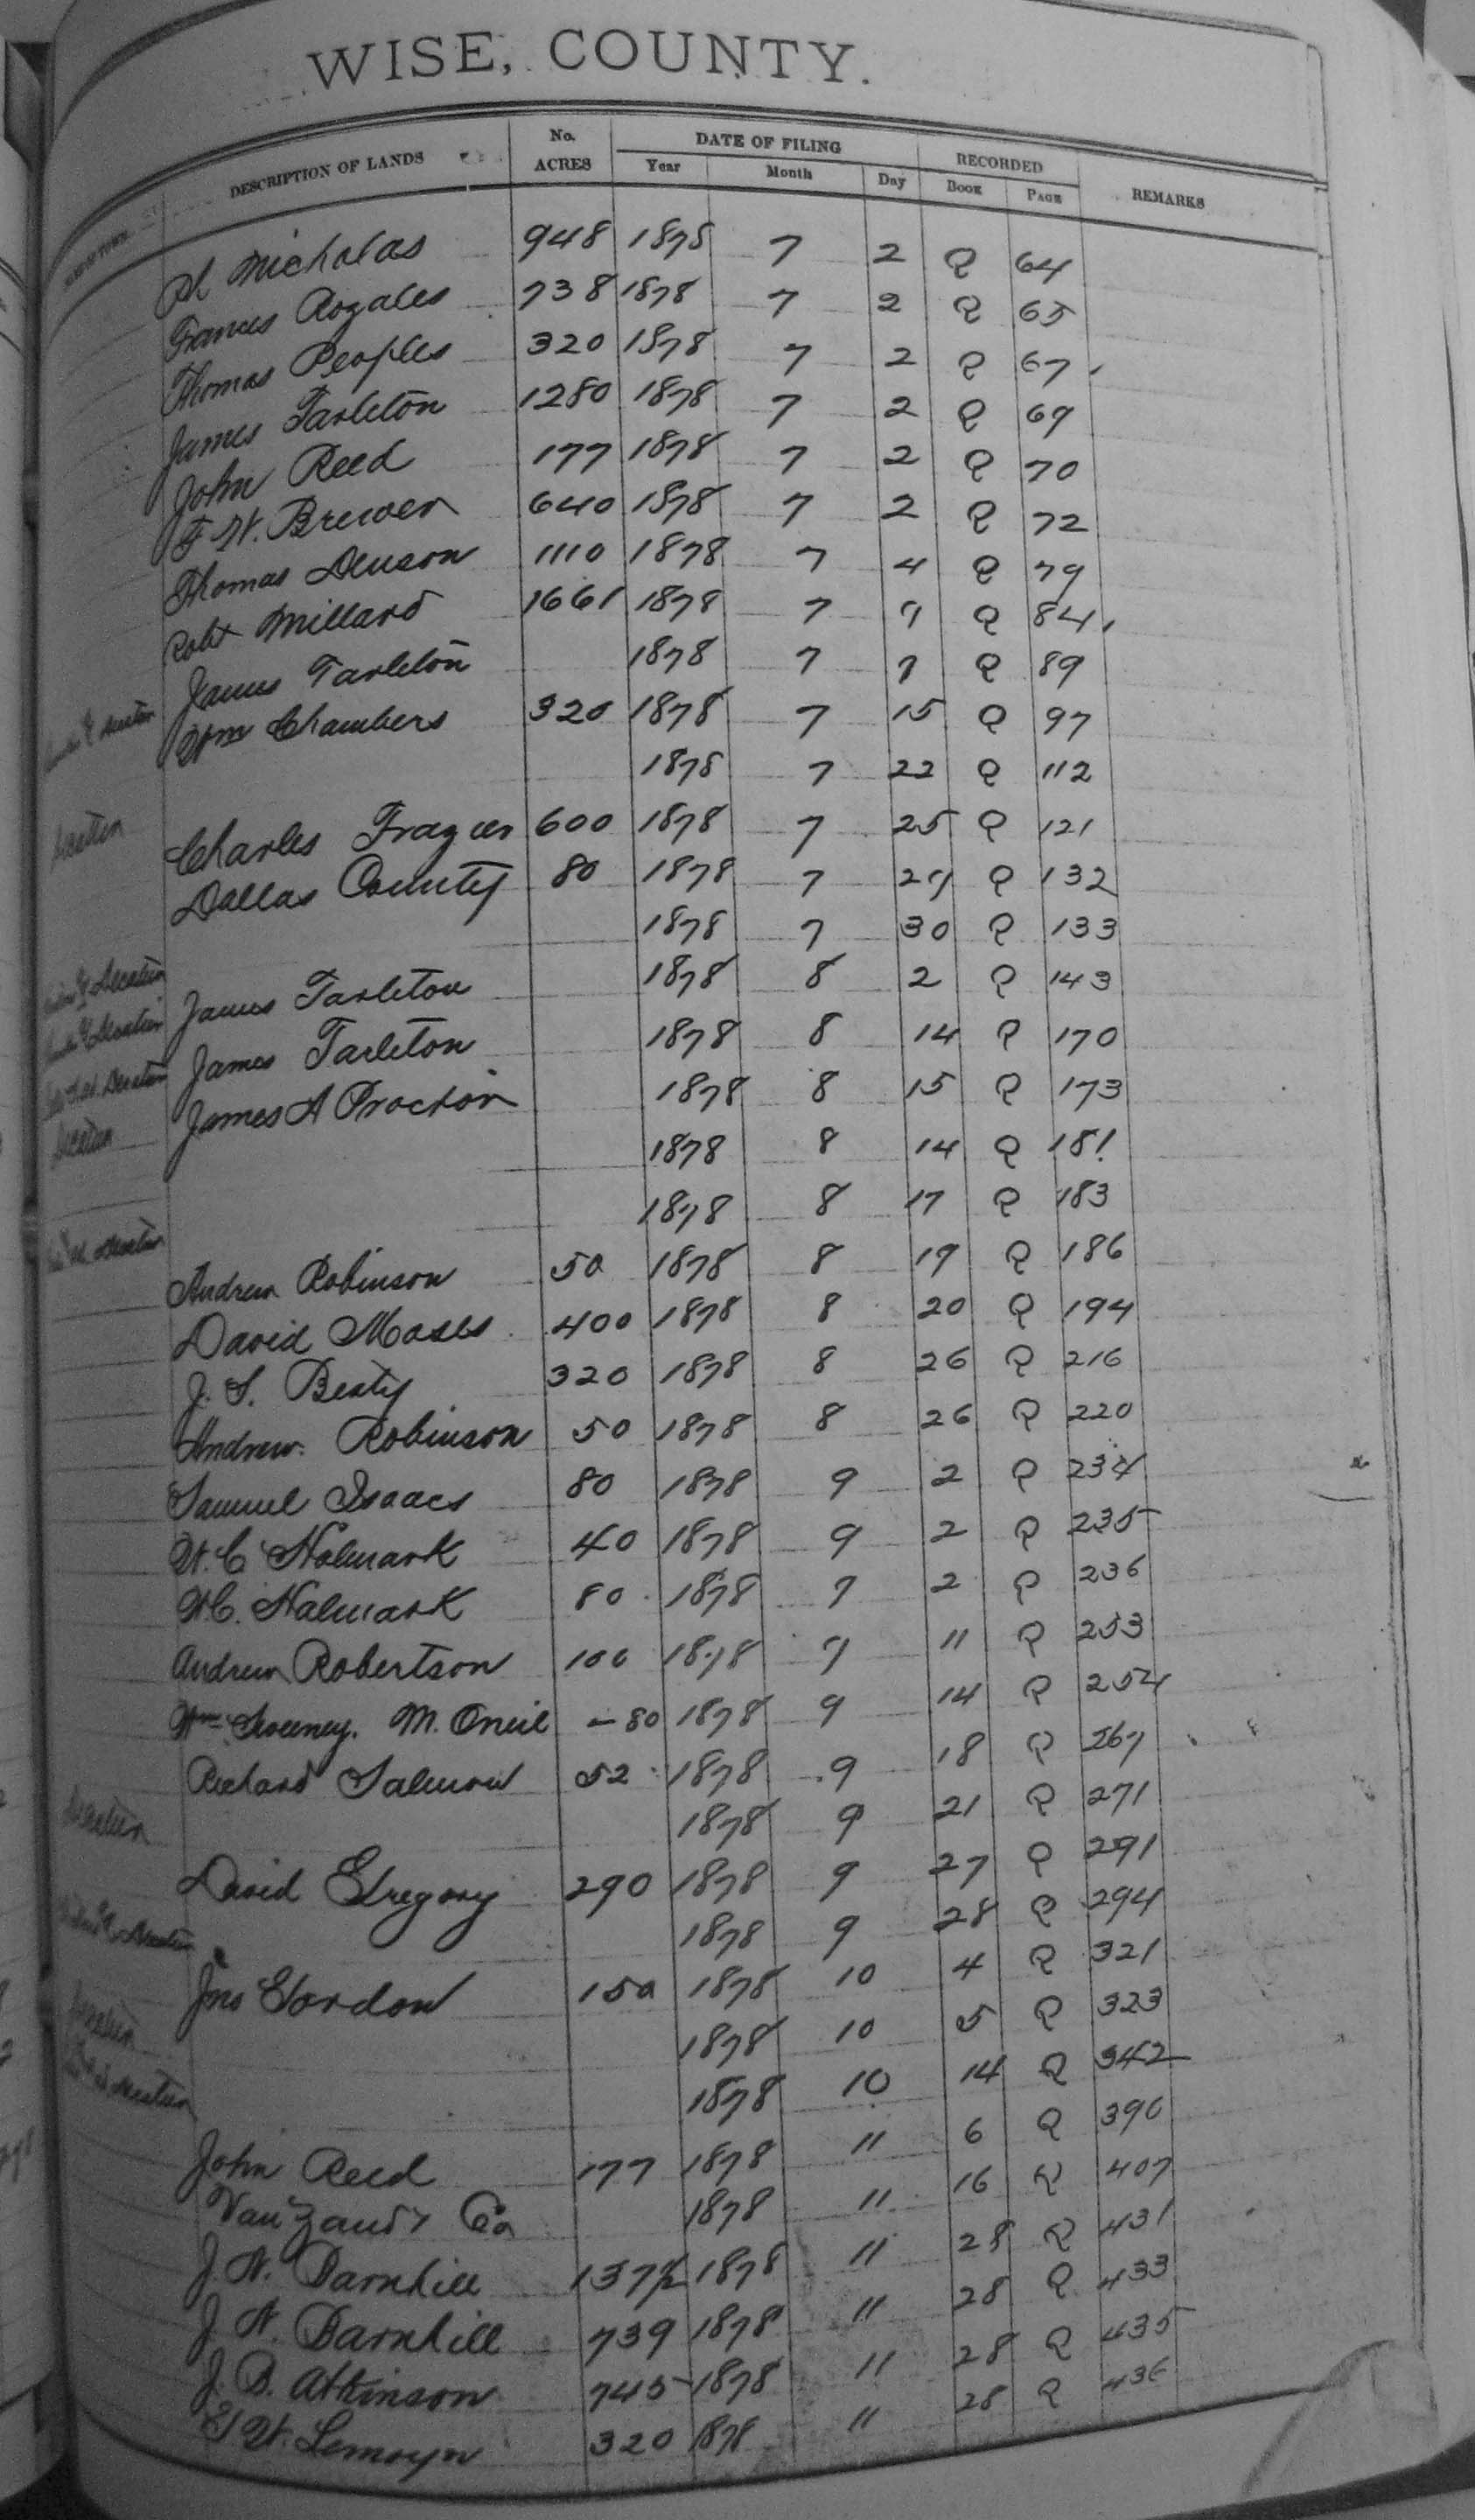 WISE, COUNTY.
DESCRIPTION OF LANDS No. ACRES DATE OF FILING Year Month Day RECORDED BOOK PAGE REMARKS
Nicholas 948 1878 7 2 Q 64
Frances Rozales 738 1878 7 2 Q 65
Thomas Peoples 320 1878 7 2 Q 67
James Tarleton 1280 1878 7 2 Q 69
John Reed 177 1878 7 2 Q 70
F W. Brewer 640 1878 7 2 Q 72
Thomas Deuson 1110 1878 7 4 Q 79
Robt Millard 1661 1878 7 9 Q 84
James Tarleton 1878 7 9 Q 89
Wm Chambers 320 1878 7 15 Q 97
1878 7 22 Q 112
Decatur
Charles Frazier 600 1878 7 25 Q 121
Dallas County 80 1878 7 29 Q 132
1878 7 30 Q 133
Decatur James Tarleton 1878 8 2 Q 143
Decatur James Tarleton 1878 8 14 Q 170
Decatur James A Proctor 1878 8 15 Q 173
Decatur 1878 8 14 Q 181
1878 8 17 Q 183
Decatur
Andrew Robinson 50 1878 8 19 Q 186
David Moses 400 1878 8 20 Q 194
J. S. Beaty 320 1878 8 26 Q 216
Andrew Robinson 50 1878 8 26 Q 220
Samuel Isaacs 80 1878 9 2 Q 234
W. C Halmark 40 1878 9 2 Q 235
W C. Halmark 80 1878 9 2 Q 236
Andrew Robertson 100 1878 9 11 Q 253
Wm Sweeney. M. Oneil - 80 1878 9 14 Q 254
Richard Salmon 52 1878 9 18 Q 267
Decatur 1878 9 21 Q 271
David Gregory 290 1878 9 27 Q 291
Decatur 1878 9 28 Q 294
Jno Gordon 150 1878 10 4 Q 321
Decatur 1878 10 5 Q 323
Decatur 1878 10 14 Q 342
John Reed 177 1878 11 6 Q 390
Van Zandt Co 1878 11 16 Q 407
J. N. Barnhill 137½ 1878 11 28 Q 431
J. N. Barnhill 739 1878 11 28 Q 433
J. B. Atkinson 745 1878 11 28 Q 435
G W. Lemoyn 320 1878 11 28 Q 436